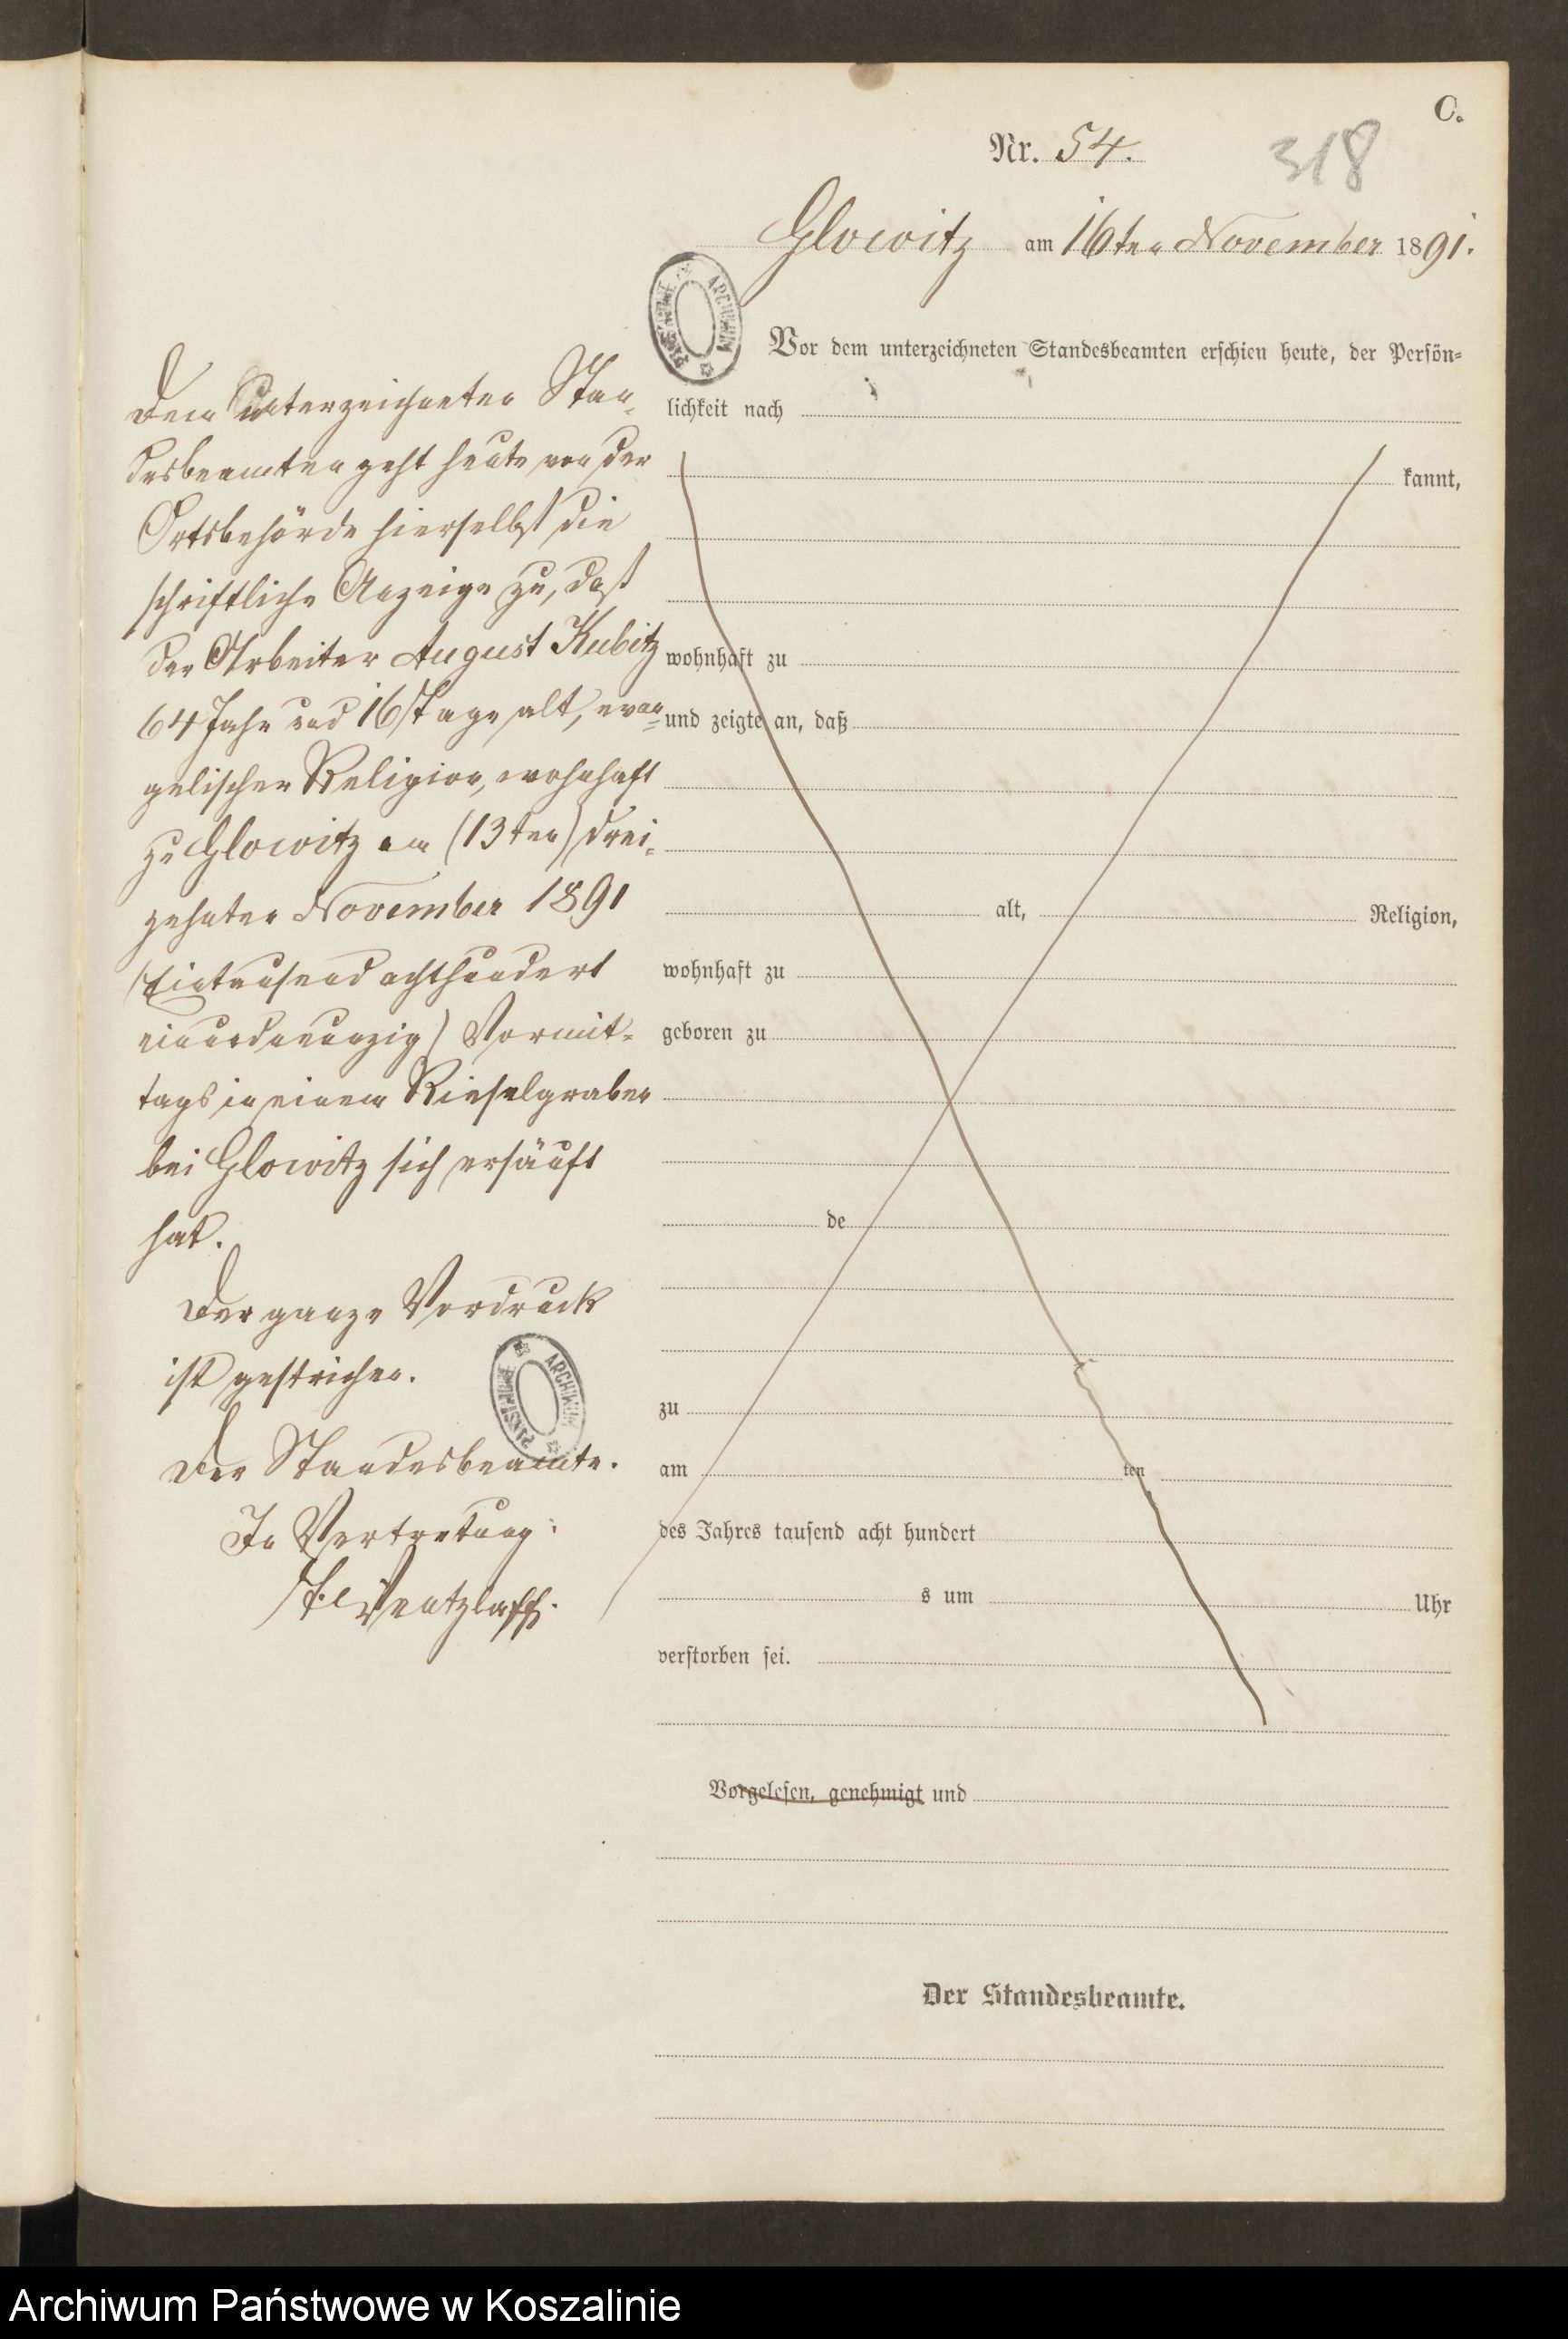 C.
Nr. 54.
318
Glowitz am 16ten November 1891.
ARCHIWUM PAŃSTWOWE
Vor dem unterzeichneten Standesbeamten erschien heute, der Persön=
lichkeit nach
kannt,
wohnhaft zu
und zeigte an, daß
alt, Religion,
wohnhaft zu
geboren zu
de
zu
am ten
des Jahres tausend acht hundert
s um Uhr
verstorben sei.
Vorgelesen, genehmigt und
Der Standesbeamte.
Dem unterzeichneten Stan=
desbeamten geht heute von der
Ortsbehörde hierselbst die
schriftliche Anzeige zu, daß
der Arbeiter August Kubitz
64 Jahr und 16 Tage alt, evan=
gelischer Religion, wohnhaft
zu Glowitz am (13ten) drei=
zehnten November 1891
(Eintausend achthundert
einundneunzig) Vormit=
tags in einem Rieselgraben
bei Glowitz sich ersäuft
hat.
Der ganze Vordruck
ist gestrichen.
ARCHIWUM PAŃSTWOWE
Der Standesbeamte.
In Vertretung:
Wentzlaff.
Archiwum Państwowe w Koszalinie